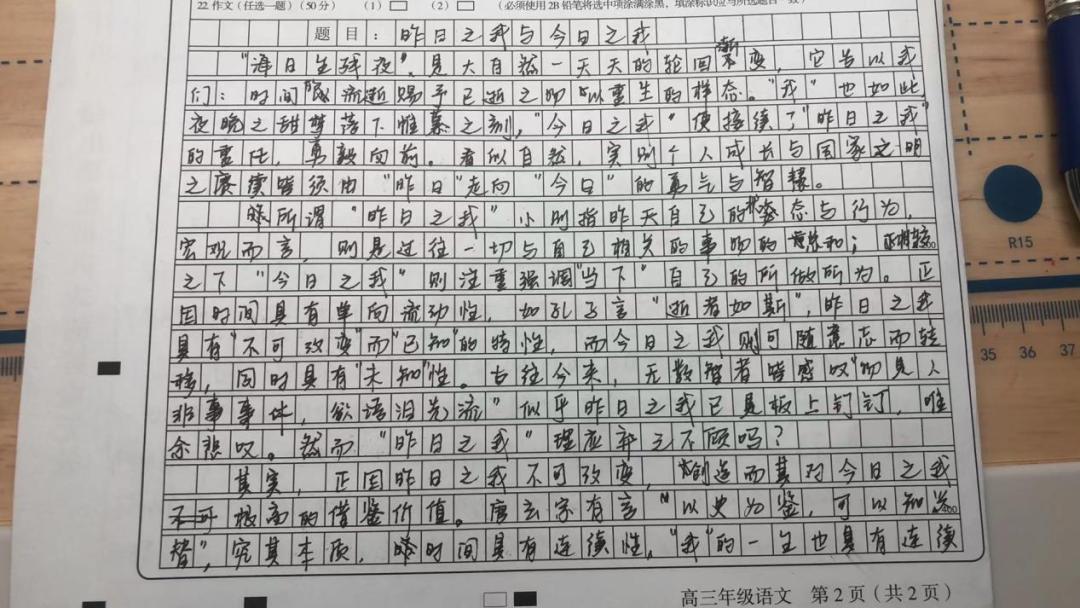 22.作文(任选一题)(50分) (1) (2) (必须使用2B铅笔将选中项涂满涂黑,填涂标识应与所选题目一致)
题目:昨日之我与今日之我
"海日生残夜",是大自然一天天的轮回渐变,它告以我
们:时间流逝赐予已逝之物以重生的样态。"我"也如此,
夜晚之甜梦落下帷幕之刻,"今日之我"便接续了"昨日之我"
的重任,勇毅向前。看似自然,实则个人成长与国家文明
之赓续皆须由"昨日"走向"今日"的勇气与智慧。
所谓"昨日之我"小则指昨天自己的状态与行为,
宏观而言,则是过往一切与自己相关的事物的总和;相较
之下"今日之我"则注重强调"当下"自己的所做所为。正
因时间具有单向流动性,如孔子言"逝者如斯",昨日之我
具有"不可改变"而"已知"的特性,而今日之我则可随意志而转
移,同时具有"未知"性。古往今来,无数智者皆感叹"物是人
非事事休,欲语泪先流"似乎昨日之我已是板上钉钉,唯
余悲叹。然而"昨日之我"理应弃之不顾吗?
其实,正因昨日之我不可改变,创造而其对今日之我
极高的借鉴价值。唐玄宗有言"以史为鉴,可以知兴
替",究其本质,时间具有连续性,"我"的一生也具有连续
高三年级语文 第2页(共2页)
R15
35 36 37